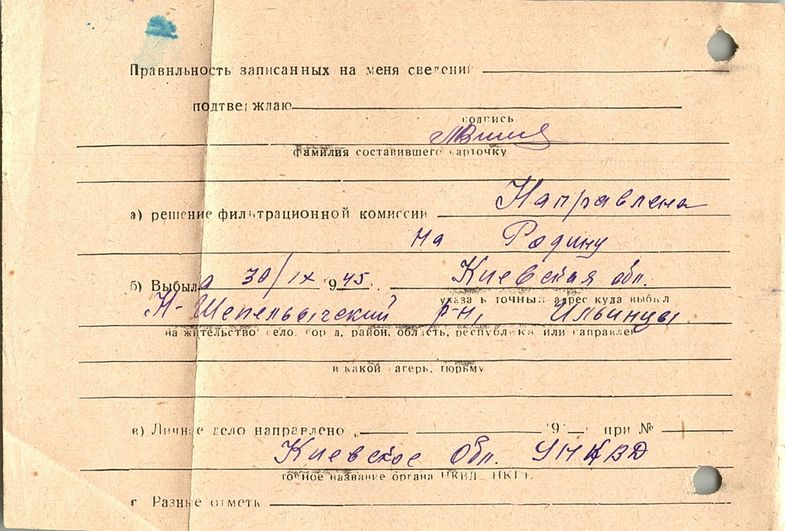 Правильность записанных на меня сведений
подтверждаю
подпись
фамилия составившего карточку
а) решение фильтрационной комиссии Направлена
на Родину
б) Выбыла 30/IX 1945 Киевская обл.
указать точный адрес куда выбыл
Н-Шепельический р-н, Ильинцы
на жительство село, город, район, область, республика или направлен
в какой лагерь, тюрьму
в) Личное дело направлено „ 19 при №
Киевское Обл. УНКВД
точное название органа НКВД НКГБ
г Разные отметк